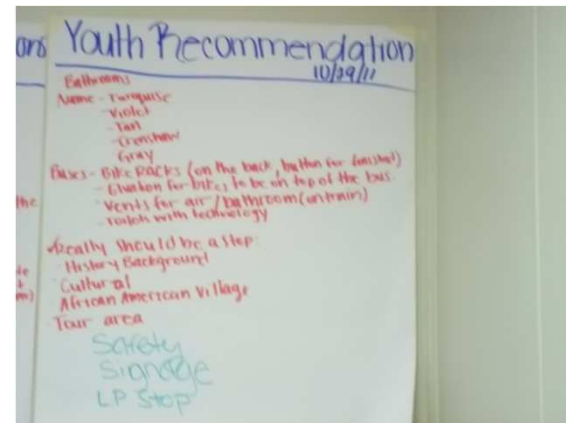 ons
Youth Recommendation
10/29/11
Bathrooms
Name - Turquise
- Violet
- Tan
- Crenshaw
- Gray
Buses - Bike racks (on the back, button for
- for bikes to be on top of the bus.
- Vents for air / bathroom (on train)
- with technology
the
Really Should be a stop:
History Background
Cultural
African American Village
Tour area
Safety
Signage
LP Stop